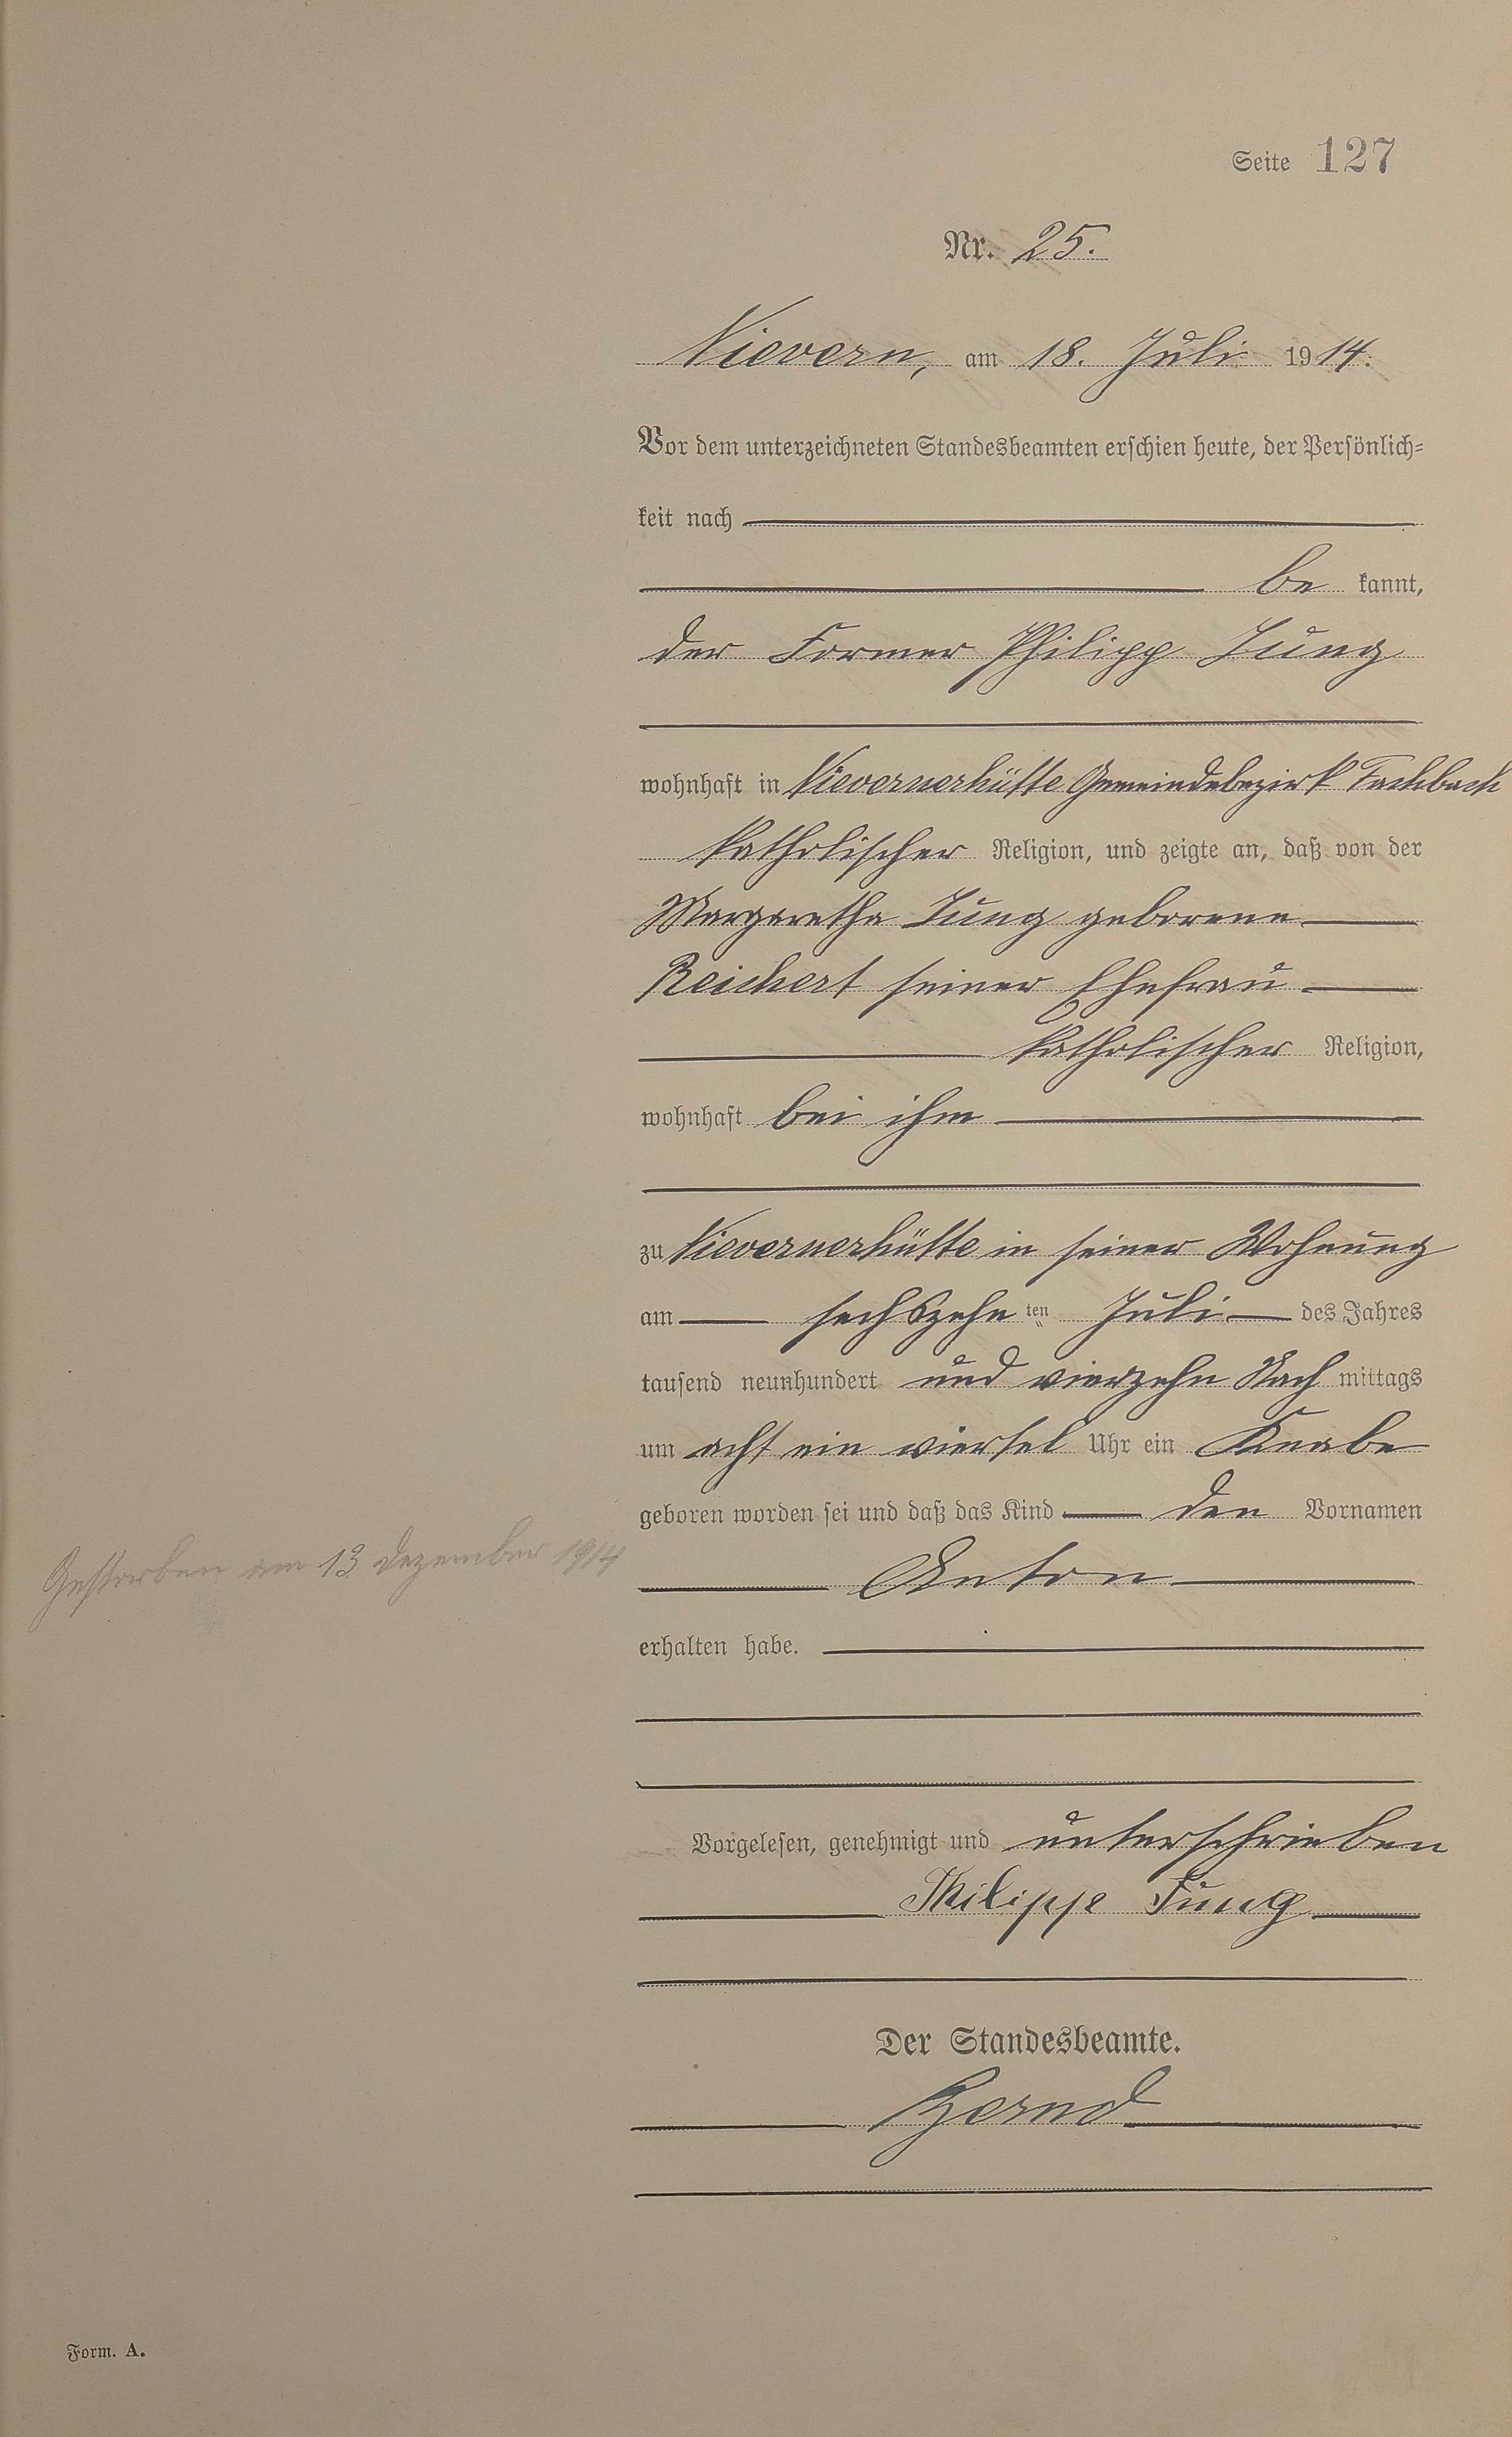 Seite 127
Nr. 25.
Nievern, am 18. Juli 1914.
Vor dem unterzeichneten Standesbeamten erschien heute, der Persönlich-
keit nach
be kannt,
der Former Philipp Jung
wohnhaft in Nievernerhütte Gemeindebezirk Fachbach
katholischer Religion, und zeigte an, daß von der
Margaretha Jung geborene
Reichert seiner Ehefrau
katholischer Religion,
wohnhaft bei ihm
zu Nievernerhütte in seiner Wohnung
am sechszehn ten Juli des Jahres
tausend neunhundert und vierzehn Nach mittags
um acht ein viertel Uhr ein Knabe
geboren worden sei und daß das Kind den Vornamen
Gestorben am 13 Dezember 1914
Anton
erhalten habe.
Vorgelesen, genehmigt und unterschrieben
Philipp Jung
Der Standesbeamte.
Form. A.